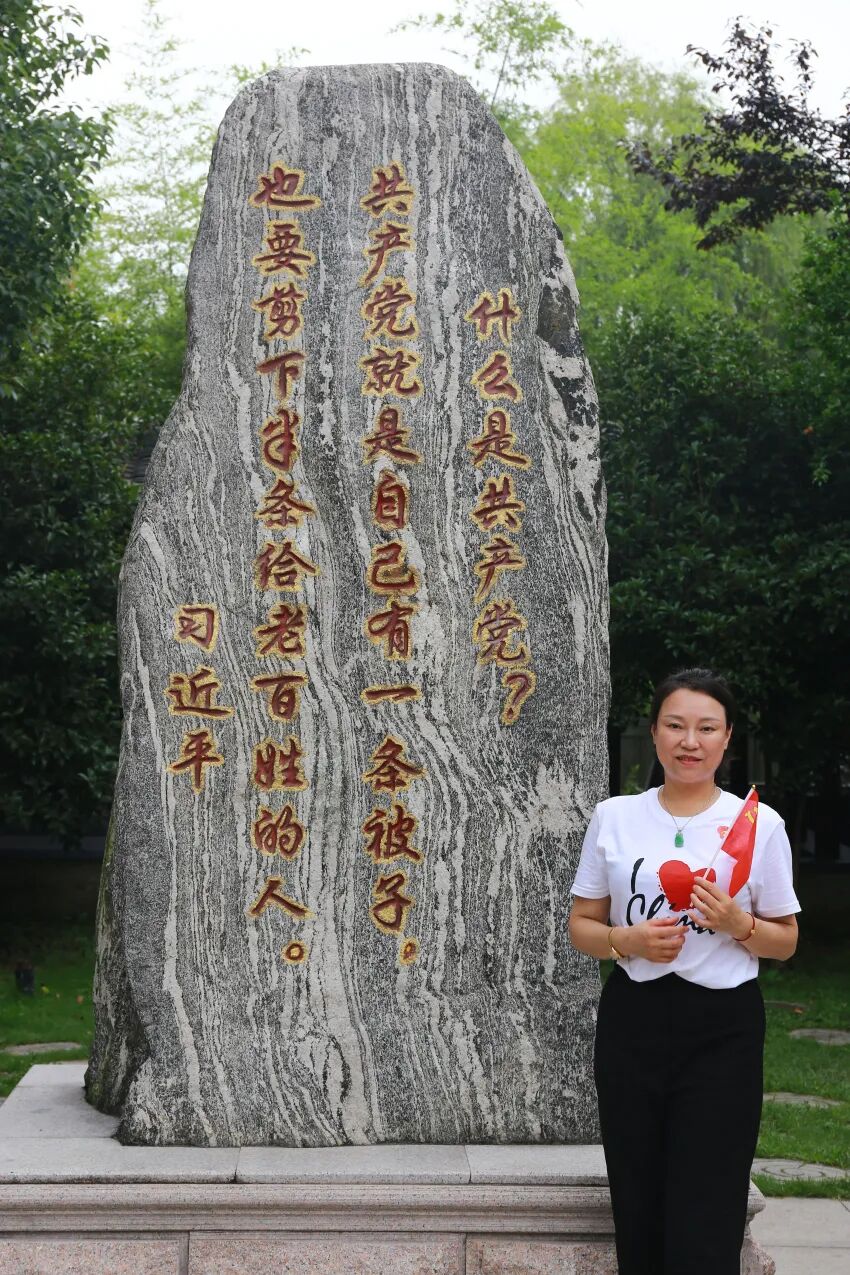 什么是共产党?
共产党就是自己有一条被子。
也要剪下半条给老百姓的人。
习近平
I
China